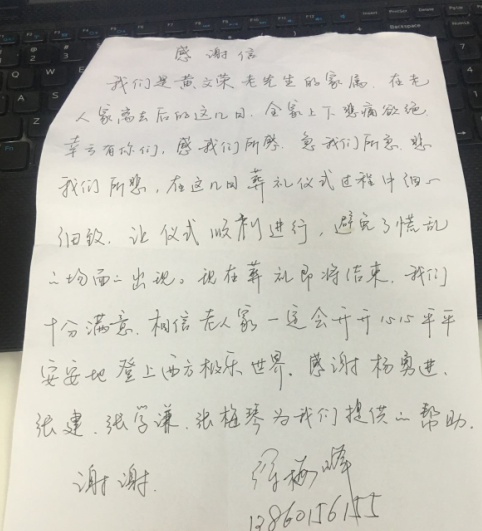 感谢信
我们是黄文荣老先生的家属.在老
人家离去后的这几日,全家上下悲痛欲绝
幸亏有你们,感我们所感.急我们所急.悲
我们所悲,在这几日葬礼仪式过程中细心
细致.让仪式顺利进行,避免了慌乱
的场面的出现。现在葬礼即将结束.我们
十分满意.相信老人家一定会开开心心平平
安安地登上西方极乐世界.感谢杨勇进.
张建.张学谦.张桂琴为我们提供的帮助.
谢谢.
13860156155